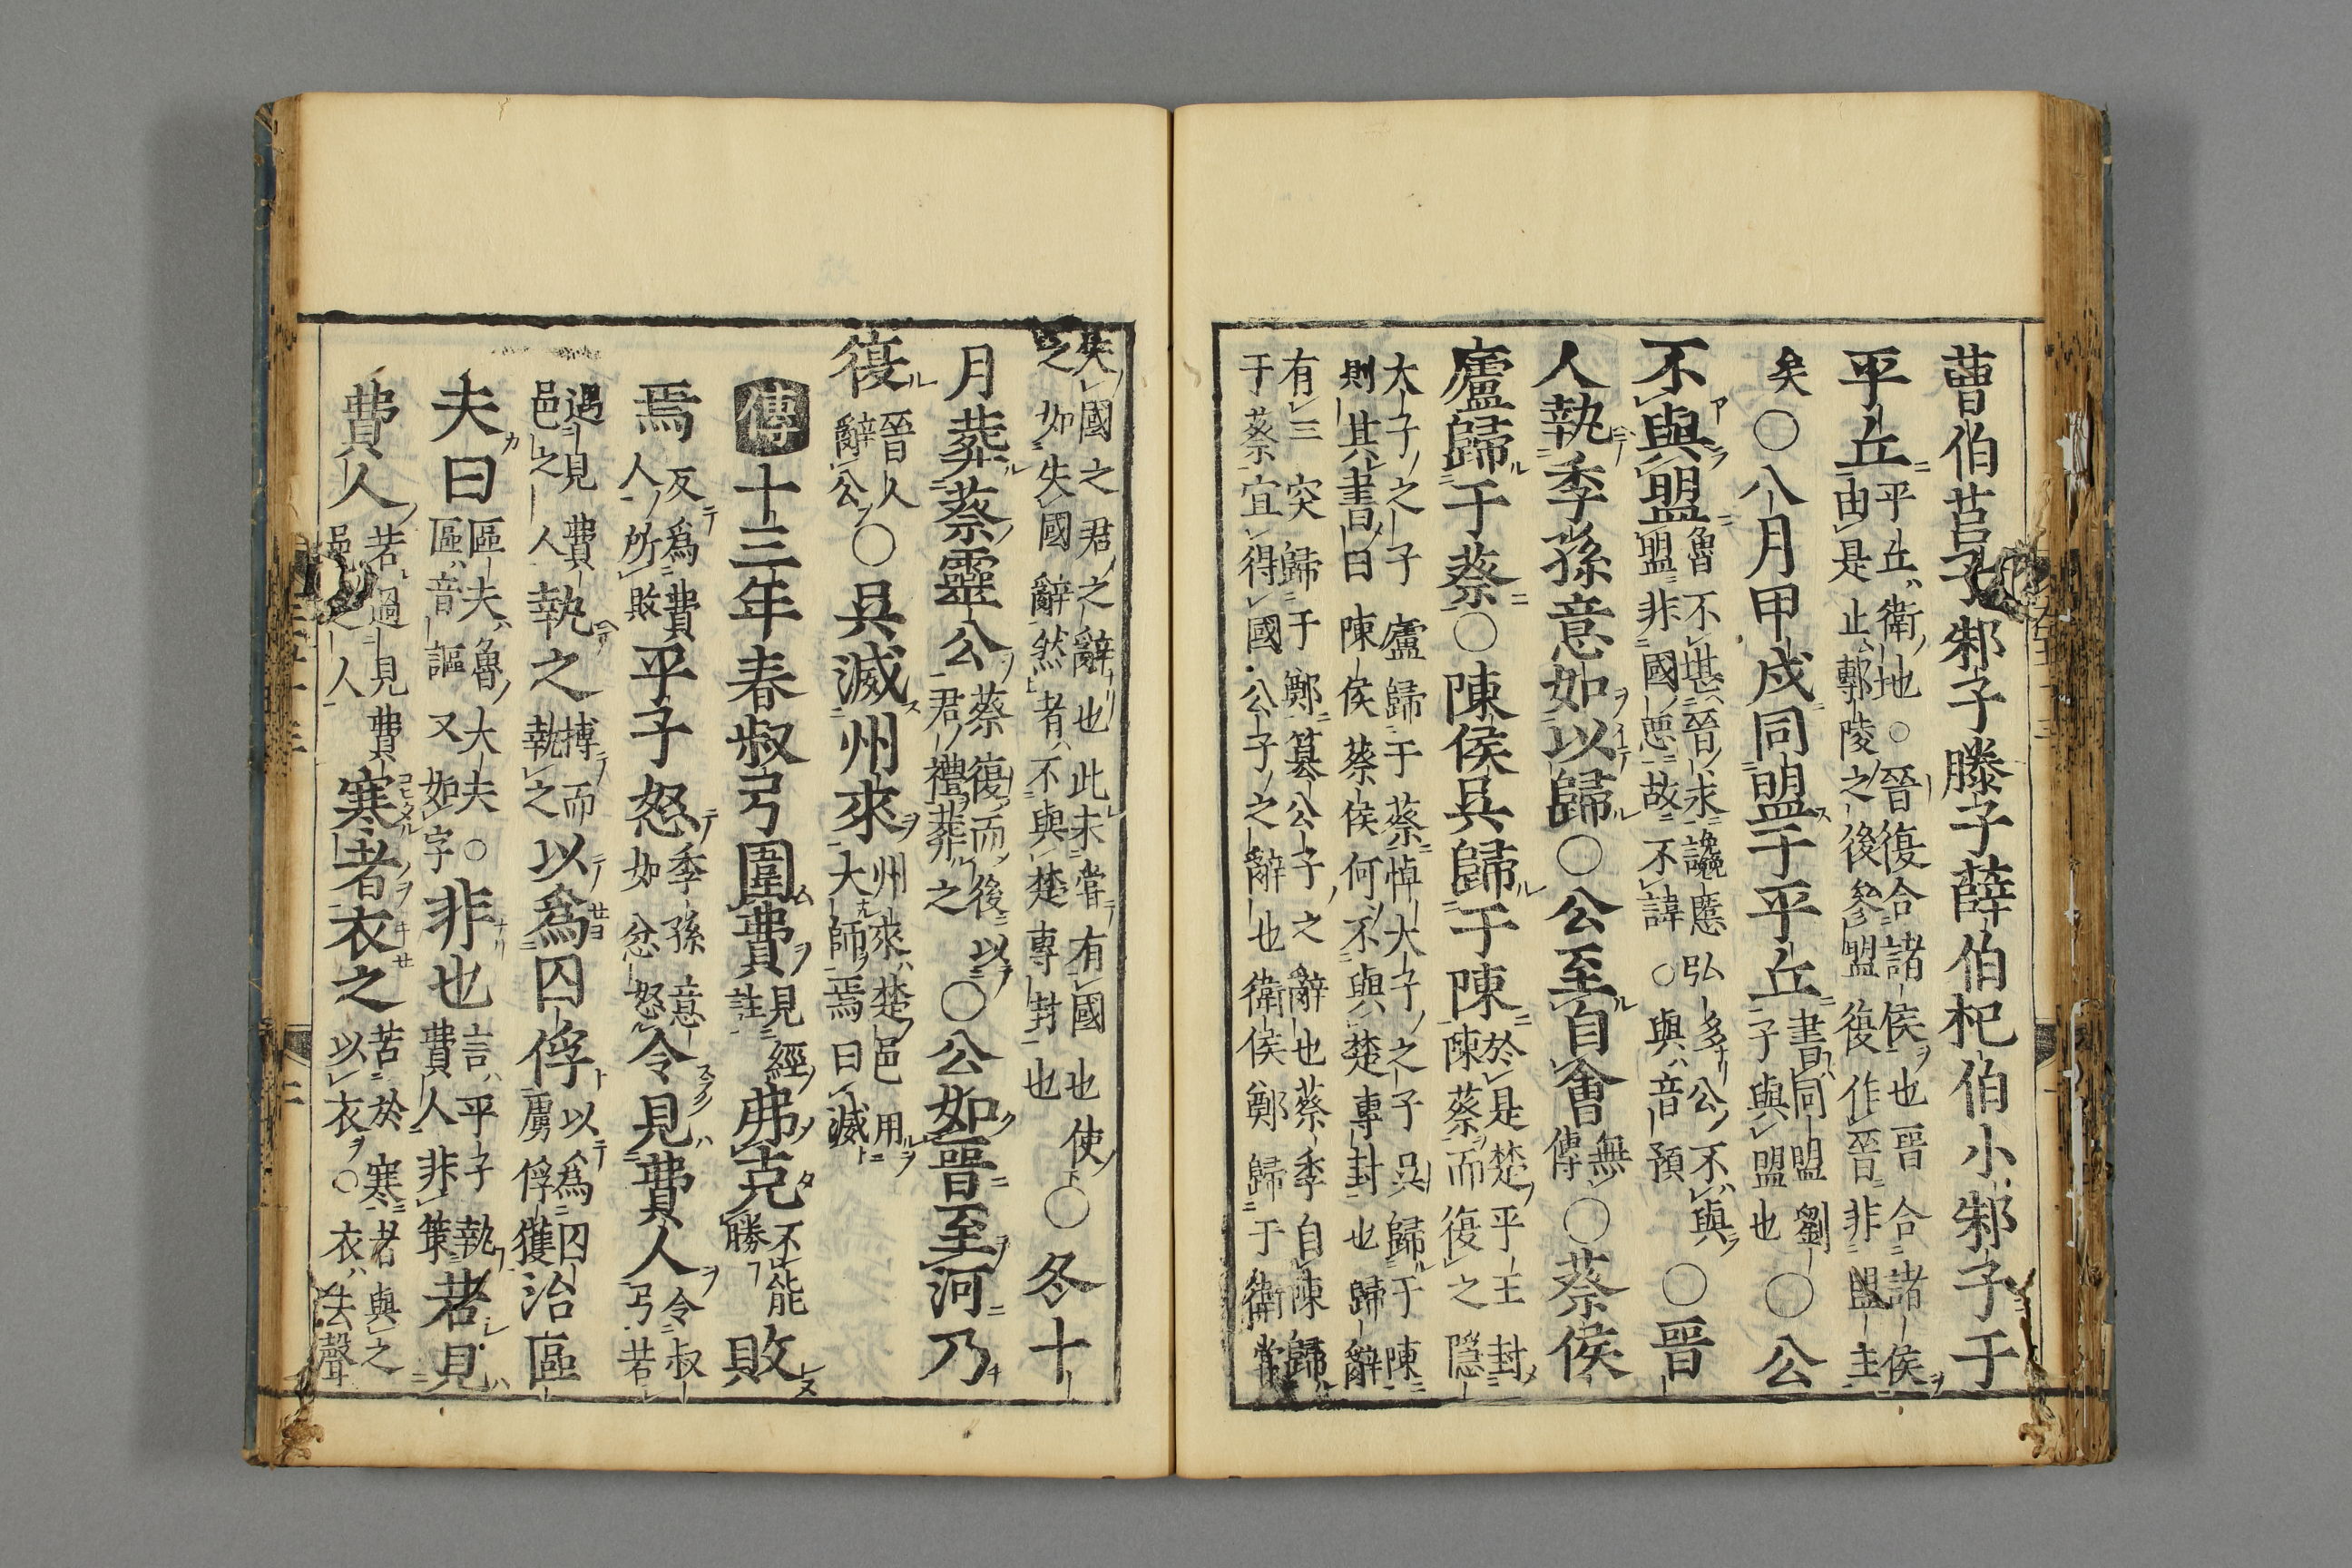 曹伯莒子邾子滕子薛伯杞伯小邾子于
平丘平丘衛地○晉復合諸侯也晉合諸侯由是止鄟陵之後參盟復作晉非盟主
矣○八月甲戌同盟于平丘書同盟劉子與盟也○公
不與盟魯不堪晉求讒慝弘多公不與盟非國惡故不諱○與音預○晉
人執季孫意如以歸○公至自會無傳○蔡侯
廬歸于蔡○陳侯吳歸于陳於是楚平王封陳蔡而復之隱
太子之子廬歸于蔡悼大子之子吳歸于陳則其書曰陳侯蔡侯何不與楚專封也歸辭
有三突歸于鄭篡公子之辭也蔡季自陳歸于蔡宜得國公子之辭也衛侯鄭歸于衛常
失國之君之辭也此未嘗有國也使之如失國辭然者不與楚專封也○冬十
月葬蔡靈公蔡復而後以君禮葬之○公如晉至河乃
復晉人辭公○吳滅州來州來楚邑用大師焉曰滅
傳十三年春叔弓圍費見經註弗克不能勝敗
焉反為費人所敗平子怒季孫意如忿怒令見費人令叔弓若
遇見費邑之人執之搏而執之以爲囚俘以為囚虜俘獲治區
夫曰區夫魯大夫○區音謳又如字非也言平子執費人非策若見
費人若過見費邑之人寒者衣之苦於寒者與之以衣○衣去聲